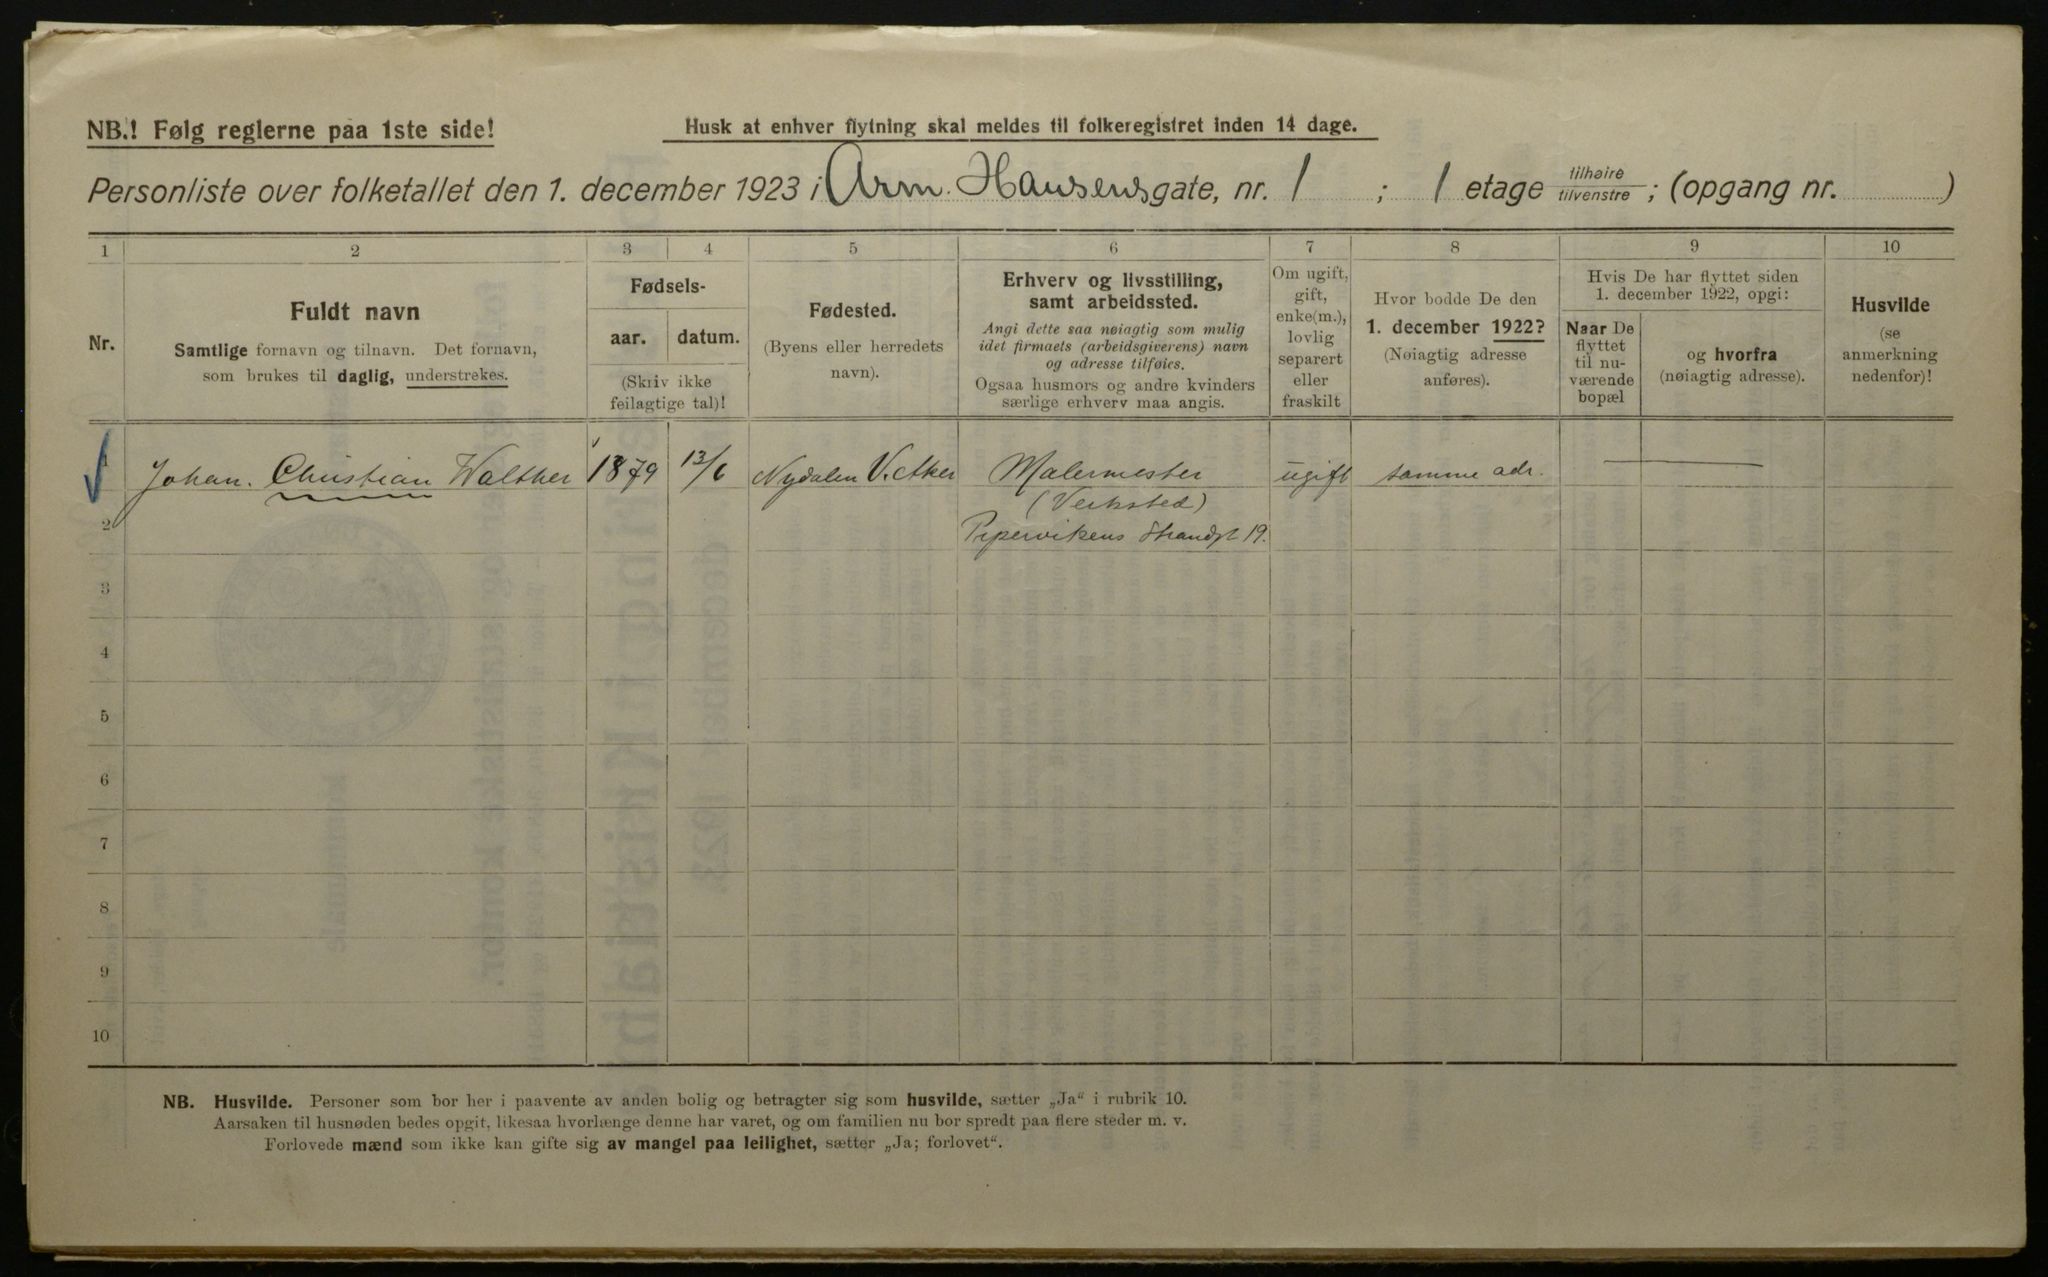 NB.! Følg reglerne paa 1ste side!
Husk at enhver flytning skal meldes til folkeregistret inden 14 dage.
Personliste over folketallet den 1. december 1923 i Arm. Hansens gate, nr. 1 ; 1 etage tilhøire/tilvenstre ; (opgang nr. )
1 2 3 4 5 6 7 8 9 10
Nr.
Fuldt navn
Samtlige fornavn og tilnavn. Det fornavn,
som brukes til daglig, understrekes.
Fødsels-
aar. datum.
(Skriv ikke
feilagtige tal)!
Fødested.
(Byens eller herredets
navn).
Erhverv og livsstilling,
samt arbeidssted.
Angi dette saa nøiagtig som mulig
idet firmaets (arbeidsgiverens) navn
og adresse tilføies.
Ogsaa husmors og andre kvinders
særlige erhverv maa angis.
Om ugift,
gift,
enke(m.),
lovlig
separert
eller
fraskilt
Hvor bodde De den
1. december 1922?
(Nøiagtig adresse
anføres).
Hvis De har flyttet siden
1. december 1922, opgi:
Naar De
flyttet
til nu-
værende
bopæl
og hvorfra
(nøiagtig adresse).
Husvilde
(se
anmerkning
nedenfor)!
Johan. Christian Walther 1879 13/6 Nydalen V. Aker Malermester ugift samme adr.
(Verksted)
2 Pipervikens Strandgt 19.
3
4
5
6
7
8
9
10
NB. Husvilde. Personer som bor her i paavente av anden bolig og betragter sig som husvilde, sætter „Ja“ i rubrik 10.
Aarsaken til husnøden bedes opgit, likesaa hvorlænge denne har varet, og om familien nu bor spredt paa flere steder m. v.
Forlovede mænd som ikke kan gifte sig av mangel paa leilighet, sætter „Ja; forlovet“.